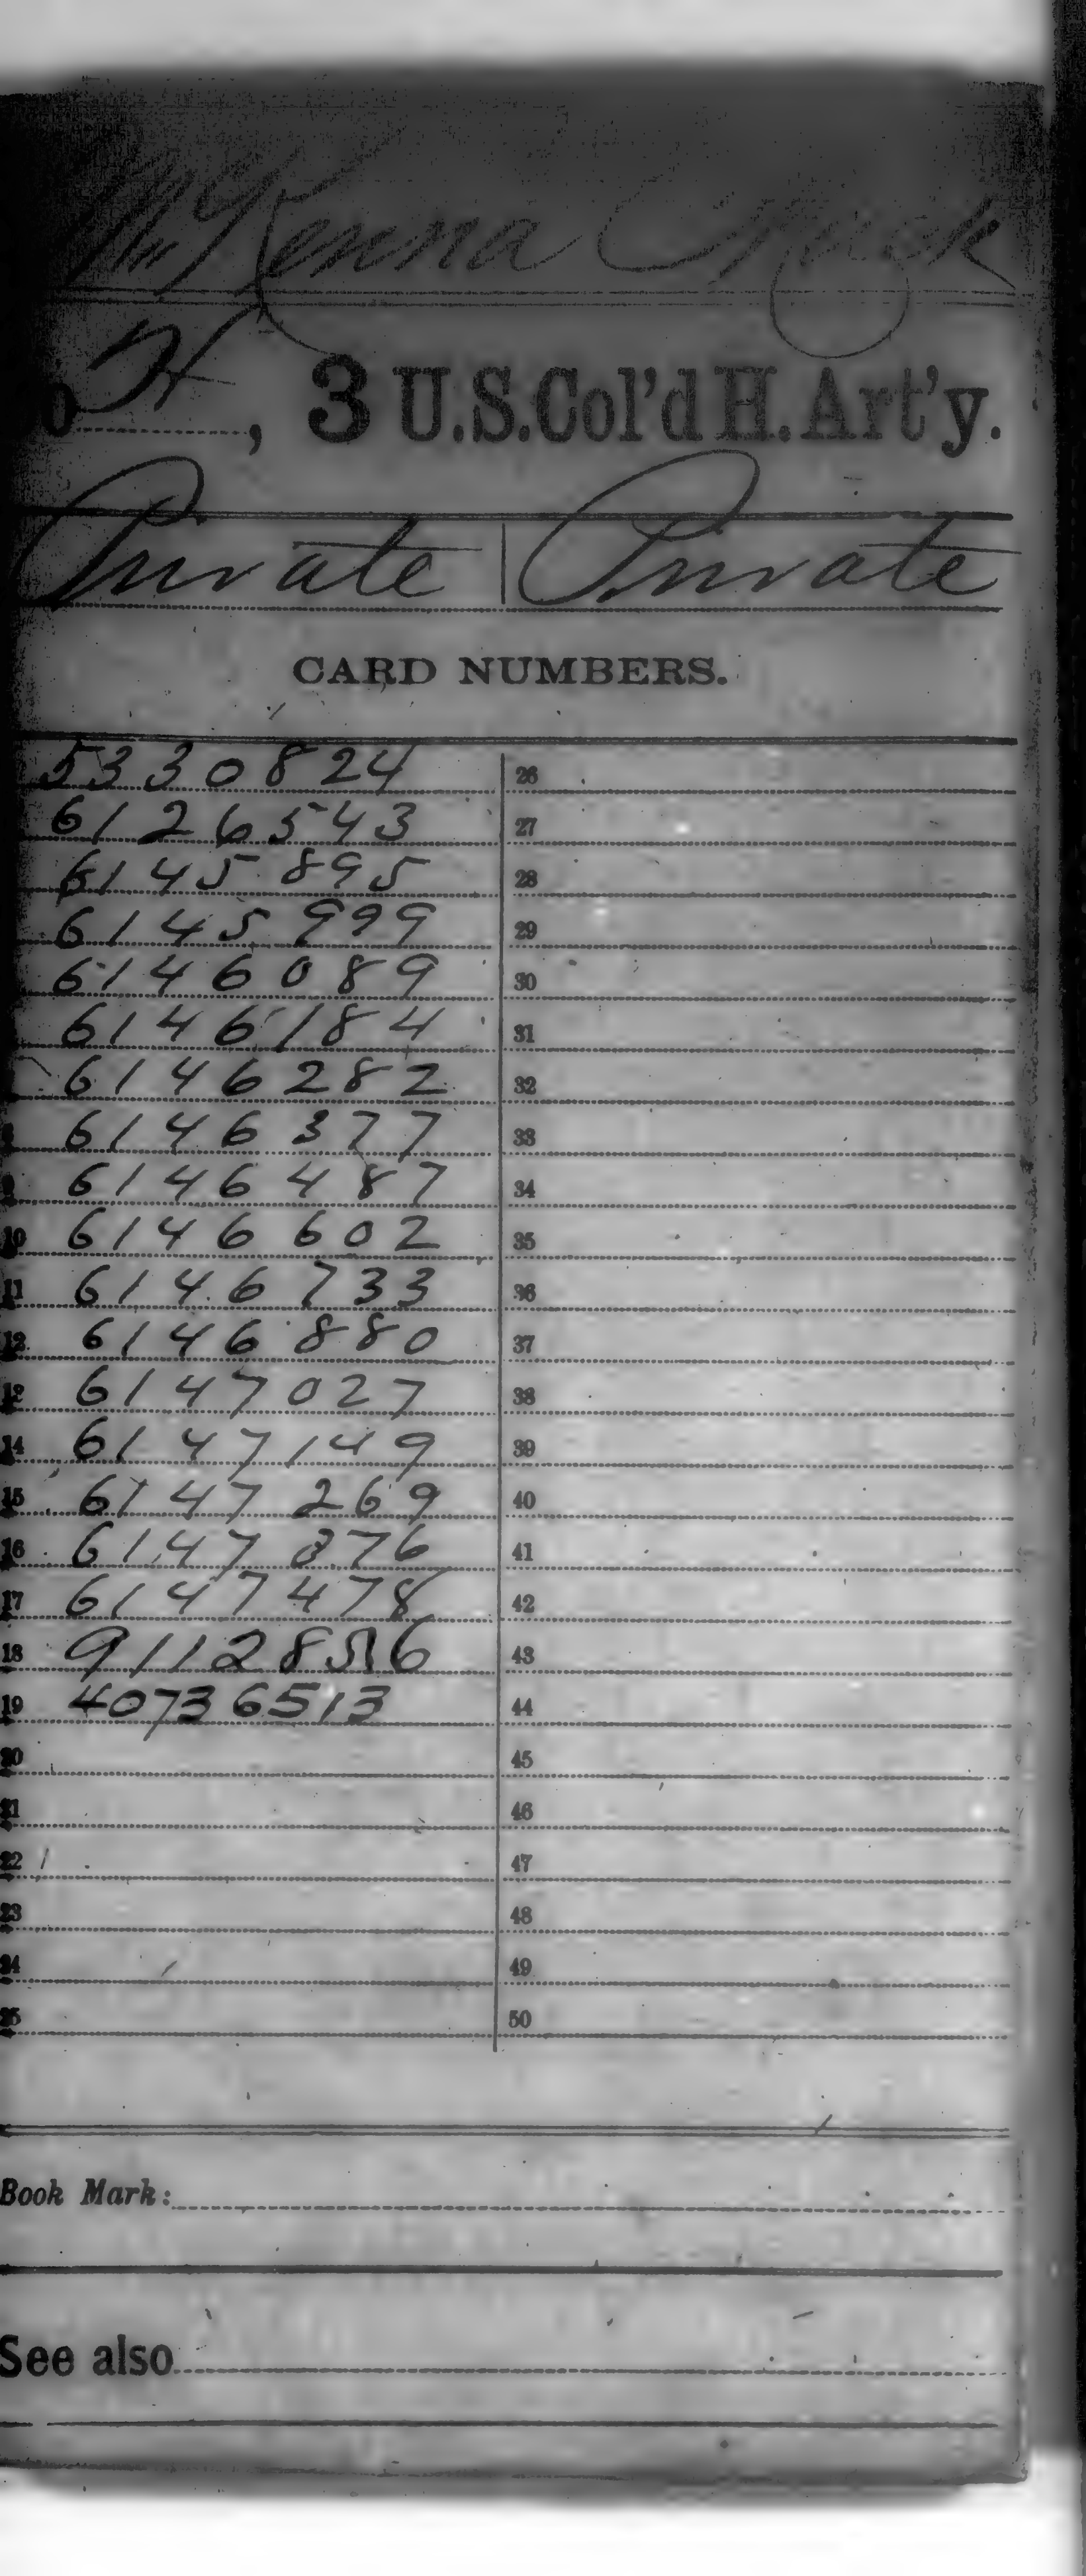 McKenna
H, 3 U.S.Col'd H. Art'y.
Private | Private
CARD NUMBERS.
5330824 26
6126543 27
6145895 28
6145999 29
6146089 30
6146184 31
6146282 32
6146377 33
9 6146487 34
10 6146602 35
11 6146733 36
12 6146880 37
13 6147027 38
14 6147149 39
15 6147269 40
16 6147376 41
17 6147478 42
18 91128516 43
19 40736513 44
20 45
21 46
22 47
23 48
24 49
25 50
Book Mark:
See also